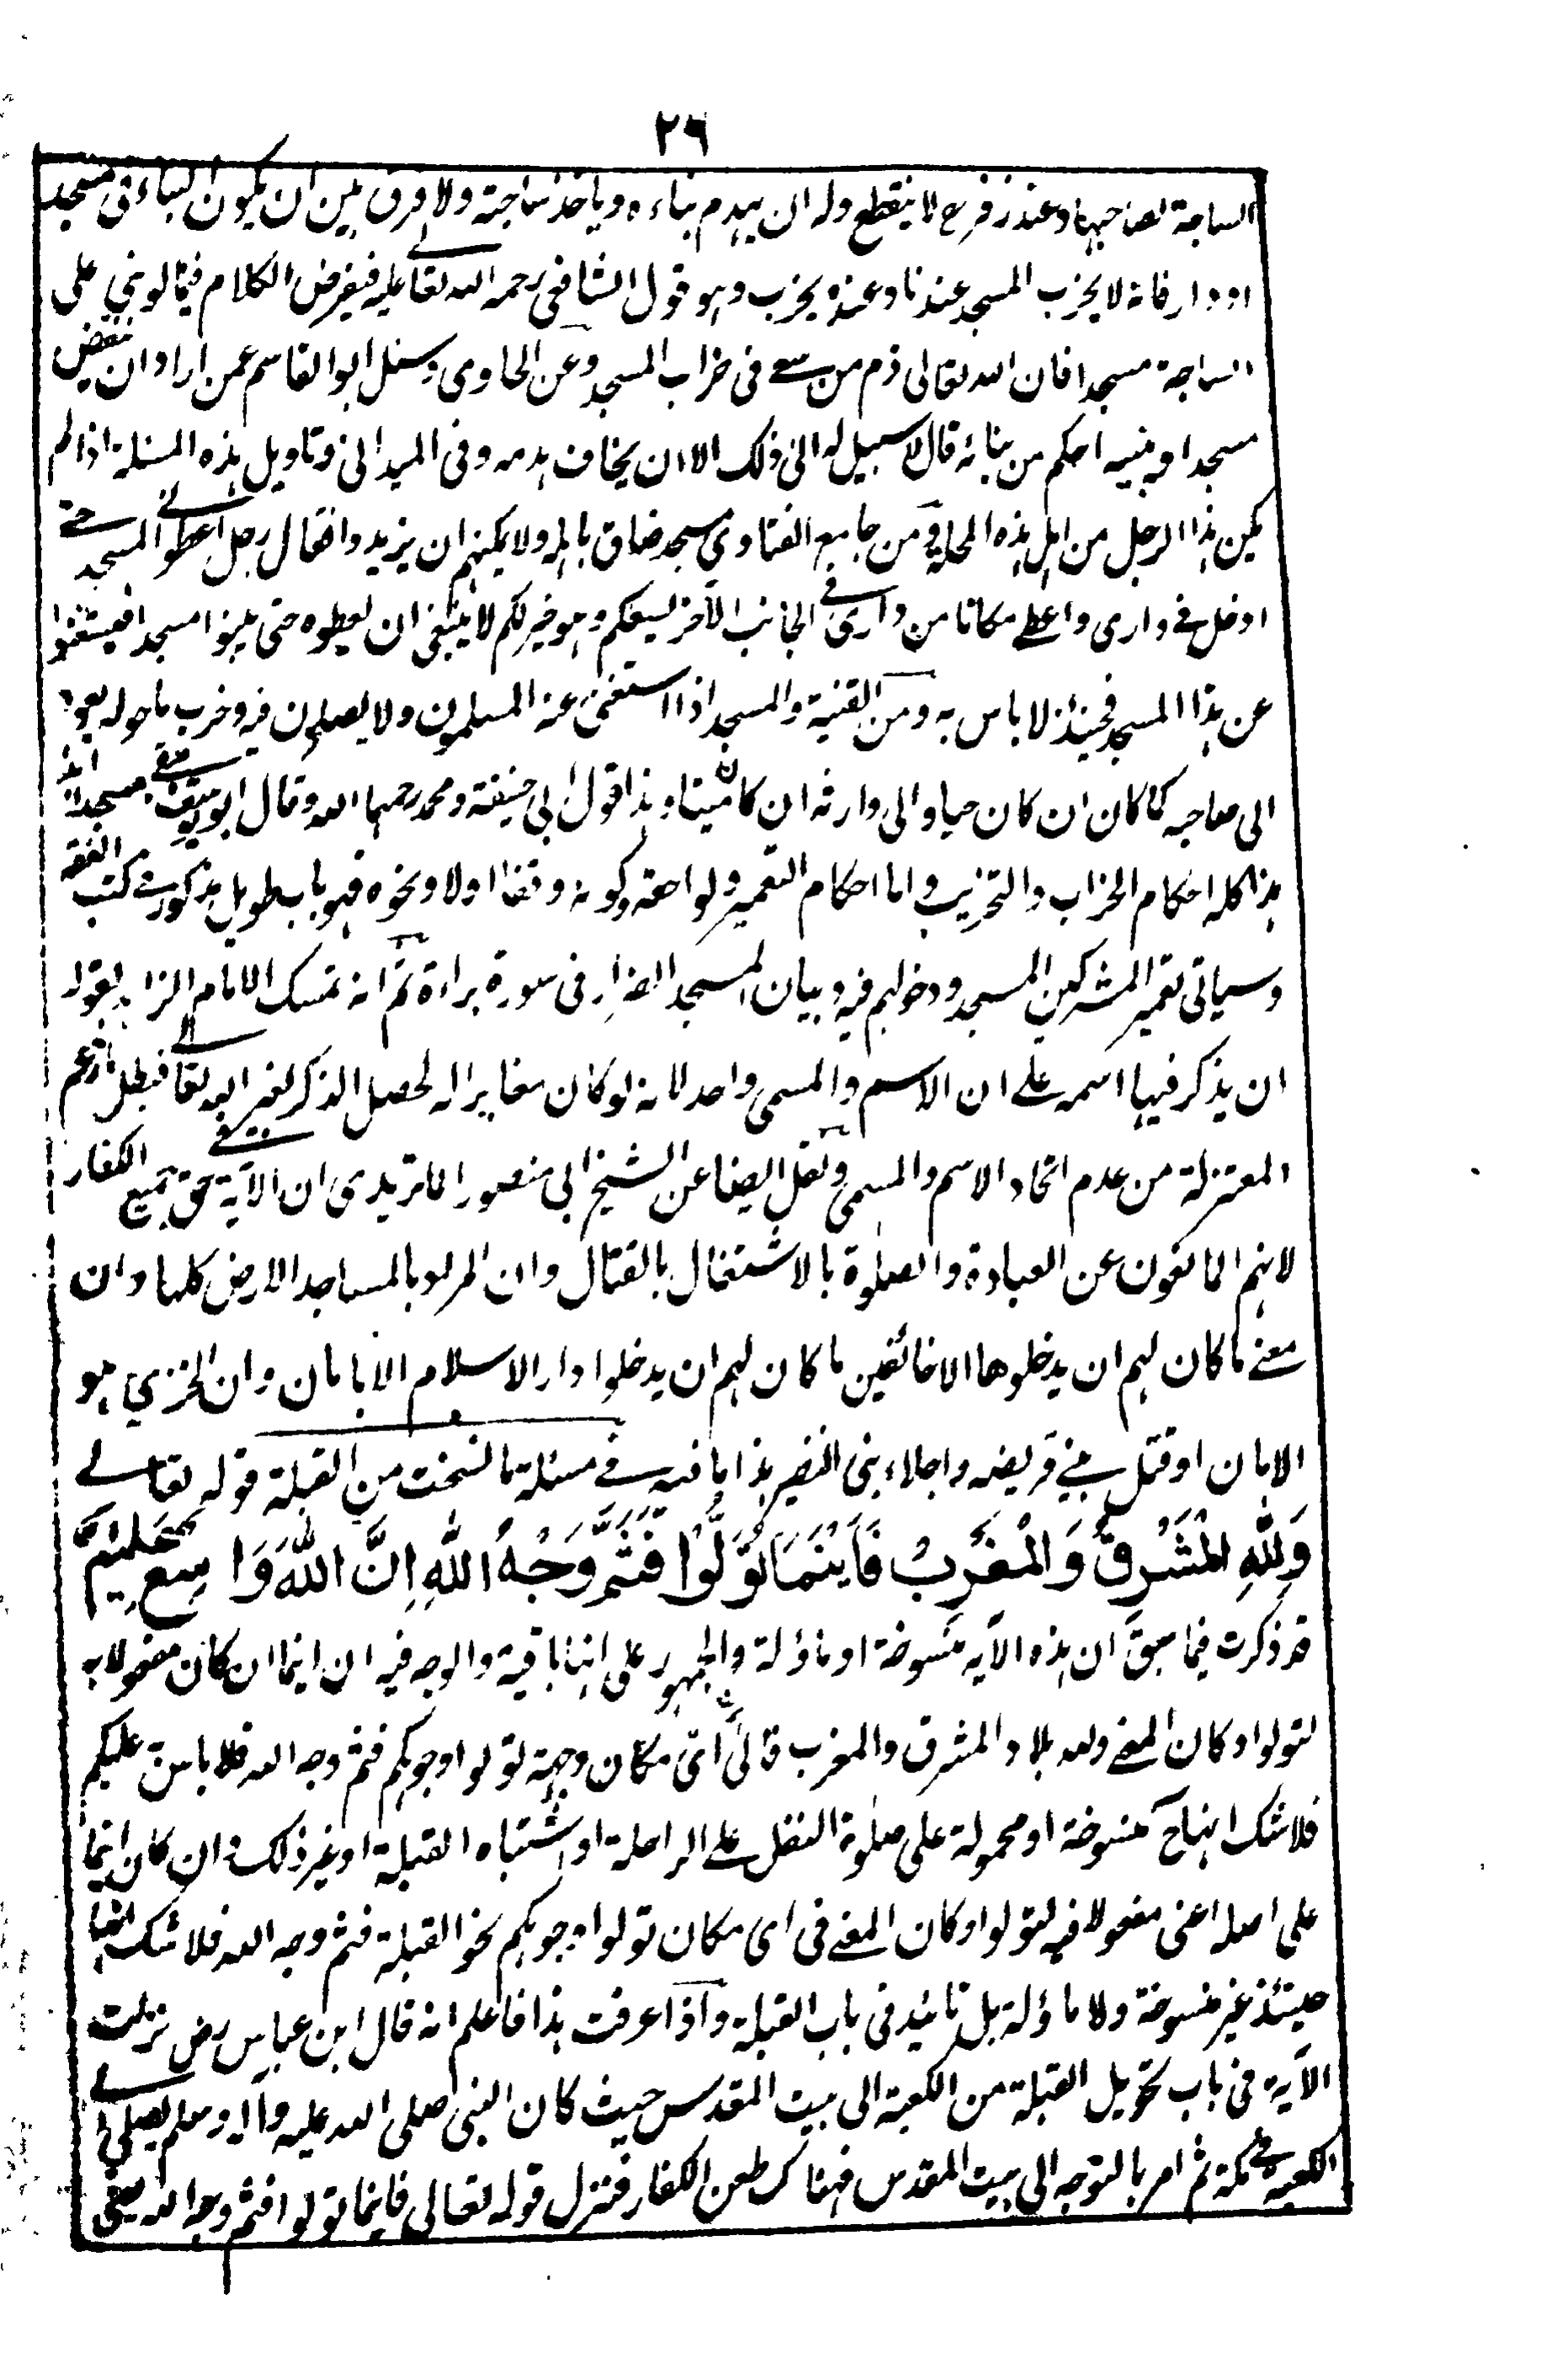 ٢٦
الساجة لصاحبها وعند زفرح لا ينقطع وله ان يهدم بناءه وياخذ ساجته ولا فرق بين ان يكون البناء فى مسجد
او دار فانه لا يخرب المسجد عندنا وعنده يخرب وهو قول الشافعى رحمه الله تعالى عليه فيفرض الكلام فيما لو بني على
الساجة مسجدا فان الله تعالى ذم من سعى فى خراب المسجد وعن الحاوى وسئل ابو القاسم عمن اراد ان ينقض
مسجدا ويبنيه احكم من بنائه قال لا سبيل له الى ذلك الا ان يخاف هدمه وفى الميدانى وتاويل هذه المسئلة اذا لم
يكن هذا الرجل من اهل هذه المحلة ومن جامع الفتاوى مسجد ضاق باهله ولا يمكنهم ان يزيدوا فقال رجل اعطونى المسجد حتى
ادخل فى دارى واعطى مكانا من دارى فى الجانب الآخر ليسعكم وهو خير لكم لا ينبغى ان يعطوه حتى يبنوا مسجدا فيستغنوا
عن هذا المسجد فحينئذ لا باس به ومن القنية والمسجد اذا استغنى عنه المسلمون ولا يصلون فيه وخرب ما حوله يعود
الى صاحبه كما كان ان كان حيا والى وارثه ان كان ميتا وهذا قول ابى حنيفة ومحمد رحمهما الله وقال ابو يوسف يبقى مسجدا ابدا
هذا كله احكام الخراب والتخريب واما احكام التعمير ولواحقه وكونه وقفا اولا ونحوه فهو باب طويل مذكور فى كتب الفقه
وسياتى تعمير المشركين المسجد ودخولهم فيه وبيان المسجد الضرار فى سورة براءة ثم انه تمسك الامام الزاهد بقوله
ان يذكر فيها اسمه على ان الاسم والمسمى واحد لانه لو كان مغايرا له لحصل الذكر لغير الله تعالى فبطل ما زعم
المعتزلة من عدم اتحاد الاسم والمسمى ونقل ايضا عن الشيخ ابى منصور الماتريدى ان الآية فى حق جميع الكفار
لانهم المانعون عن العبادة والصلوة بالاشتغال بالقتال وان المراد بالمساجد الارض كلها وان
معنى ما كان لهم ان يدخلوها الا خائفين ما كان لهم ان يدخلوا دار الاسلام الا بامان وان الخزي هو
الامان او قتل بني قريضه واجلاء بنى النضير هذا ما فيه فى مسئلة ما نسخت من القبلة قوله تعالى
وَلِلّٰهِ الْمَشْرِقُ وَالْمَغْرِبُ فَاَيْنَمَا تُوَلُّوْا فَثَمَّ وَجْهُ اللّٰهِ اِنَّ اللّٰهَ وَاسِعٌ عَلِيْمٌ
قد ذكرت فيما سبق ان هذه الآية منسوخة او ماؤلة والجمهور على انها باقية والوجه فيه ان اينما ان كان مفعولا به
لتولوا وكان المعنى ولله بلاد المشرق والمغرب فالى اىّ مكان وجهة تولوا وجوهكم فثم وجه الله فلا باس عليكم
فلا شك انها ح منسوخة او محمولة على صلوة النفل على الراحلة او اشتباه القبلة او غير ذلك وان كان اينما
على اصله اعنى مفعولا فيه لتولوا وكان المعنى فى اى مكان تولوا وجوهكم نحو القبلة فثم وجه الله فلا شك انها
حينئذ غير منسوخة ولا ماؤلة بل تائيد فى باب القبلة واذا عرفت هذا فاعلم انه قال ابن عباس رض نزلت
الآية فى باب تحويل القبلة من الكعبة الى بيت المقدس حيث كان النبى صلى الله عليه وآله وسلم يصلى الى
الكعبة فى مكة ثم امر بالتوجه الى بيت المقدس فهناك طعن الكفار فنزل قوله تعالى فاينما تولوا فثم وجه الله يعنى